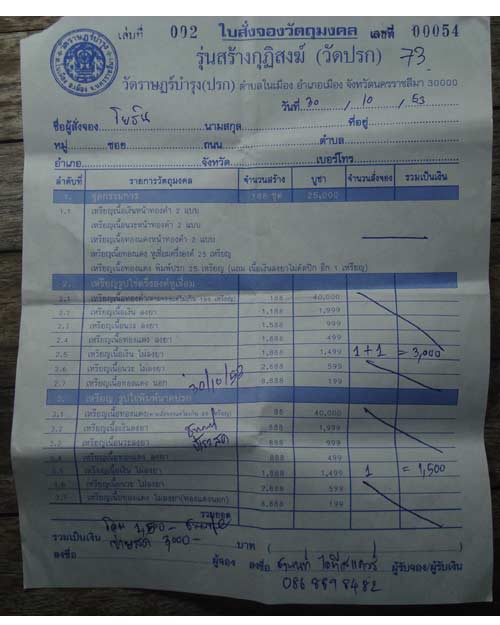 เล่มที่ 002 ใบสั่งจองวัตถุมงคล เลขที่ 00054
รุ่นสร้างกุฏิสงฆ์ (วัดปรก) 73
วัดราษฎร์บำรุง(ปรก) ตำบลในเมือง อำเภอเมือง จังหวัดนครราชสีมา 30000
วันที่ 30 / 10 / 53
ชื่อผู้สั่งจอง โยธิน นามสกุล ที่อยู่
หมู่ ซอย ถนน ตำบล
อำเภอ จังหวัด เบอร์โทร
ลำดับที่ รายการวัตถุมงคล จำนวนสร้าง บูชา จำนวนสั่งจอง รวมเป็นเงิน
1. ชุดกรรมการ 188 ชุด 25,000
1.1 เหรียญเนื้อเงินหน้าทองคำ 2 แบบ
เหรียญเนื้อนวะหน้าทองคำ 2 แบบ
เหรียญเนื้อทองแดงหน้าทองคำ 2 แบบ
เหรียญเนื้อทองแดง หูเชื่อมครึ่งองค์ 25 เหรียญ
เหรียญเนื้อทองแดง พิมพ์ปรก 25 เหรียญ (แถม เนื้อเงินลงยาไม่ตัดปีก อีก 1 เหรียญ)
2. เหรียญรูปไข่ครึ่งองค์หูเชื่อม
2.1 เหรียญเนื้อทองคำ 188 40,000
2.2 เหรียญเนื้อเงิน ลงยา 1,888 1,999
2.3 เหรียญเนื้อนวะ ลงยา 1,888 999
2.4 เหรียญเนื้อทองแดง ลงยา 1,888 499
2.5 เหรียญเนื้อเงิน ไม่ลงยา 1,888 1,499 1+1 = 3,000
2.6 เหรียญเนื้อนวะ ไม่ลงยา 2,888 599
2.7 เหรียญเนื้อทองแดง นอก 8,888 199
30/10/53
3. เหรียญ รูปไข่พิมพ์นาคปรก
3.1 เหรียญเนื้อทองคำ 88 40,000
3.2 เหรียญเนื้อเงินลงยา 888 1,999
3.3 เหรียญเนื้อนวะลงยา 888 999
3.4 เหรียญเนื้อทองแดง ลงยา 888 499
3.5 เหรียญเนื้อเงิน ไม่ลงยา 1,888 1,499 1 = 1,500
3.6 เหรียญเนื้อนวะ ไม่ลงยา 2,888 599
3.7 เหรียญเนื้อทองแดง ไม่ลงยา(ทองแดงนอก) 8,888 199
รวมยอด
โอน 1,500 -
รวมเป็นเงิน 3,000 - บาท ( )
ลงชื่อ ผู้จอง ลงชื่อ ผู้รับจอง/ผู้รับเงิน
086 889 8482